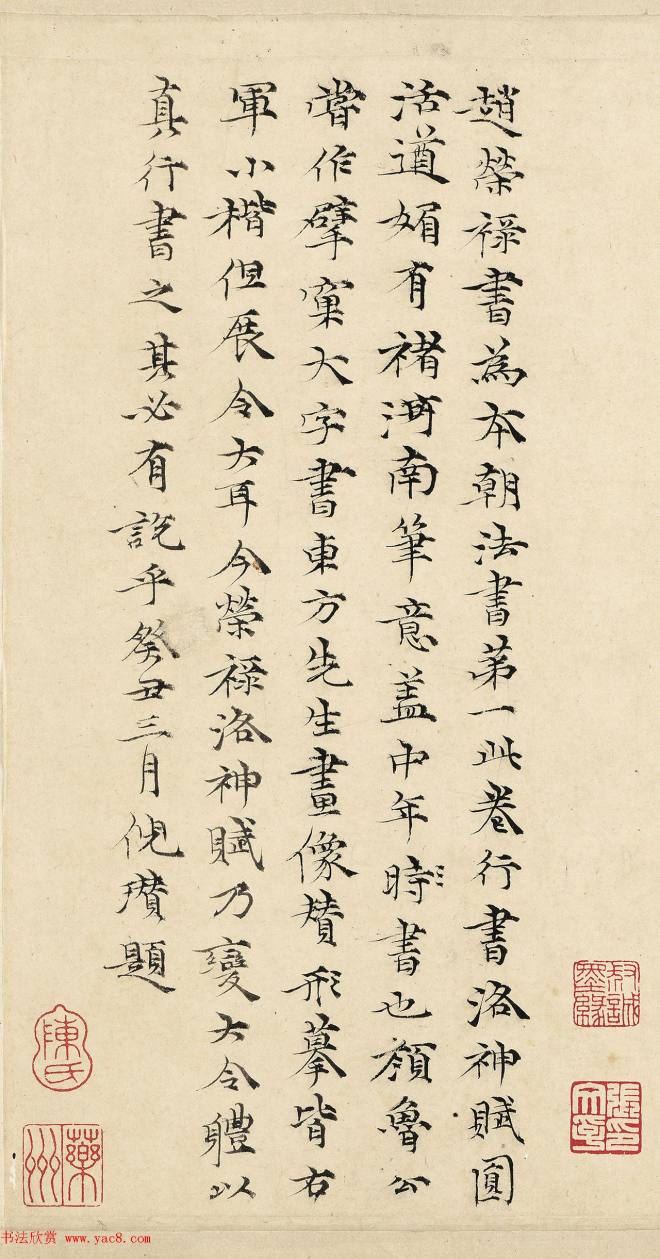 趙榮祿書為本朝法書第一此卷行書洛神賦圓
活遒媚有褚河南筆意盖中年時書也顏魯公
嘗作擘窠大字書東方先生畫像贊形摹皆右
軍小楷但展令大耳今榮祿洛神賦乃變大令體以
真行書之其必有說乎癸丑三月倪瓚題
陳氏
蘂州
书法欣赏 www.yac8.com